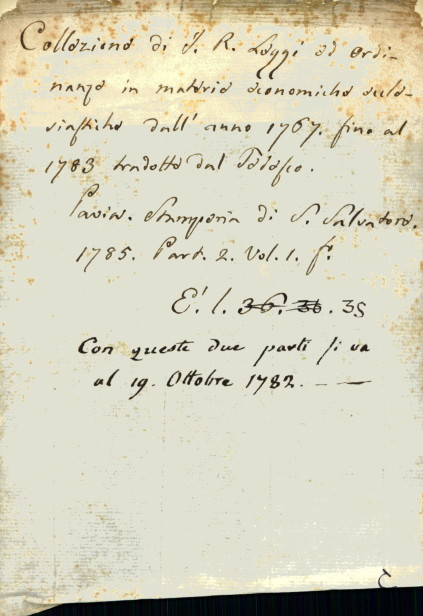 Collezione di I. R. Leggi ed ordi-
nanze in materie economiche eccle-
siastiche dall' anno 1767. fino al
1783 tradotte dal Tedesco.
Pavia. Stamperia di S. Salvatore.
1785. Part. 2. Vol. 1. f.º
E'. l. 36. 36. 35
Con queste due parti si va
al 19. Ottobre 1782. — —